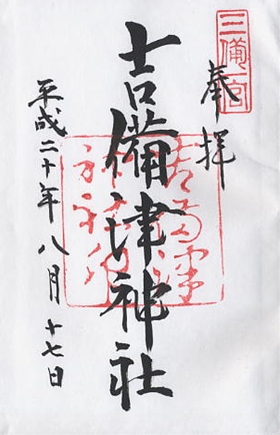 三備一宮
奉拝
吉備津神社
平成二十年八月十七日